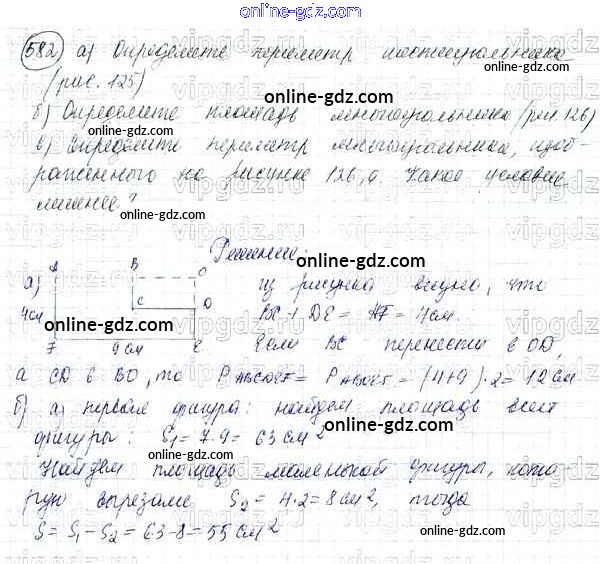 online-gdz.com
582 а) Определите периметр шестиугольника
(рис. 125)
б) Определите площадь многоугольника (рис 126)
в) Определите периметр многоугольника, изоб-
раженного на рисунке 126, а. Какое условие
лишнее?
Решение:
а) A B O
из рисунка видно, что
4см C D
BC + DE = AF = 4см.
F 9см E
Если BC перенести в OD,
а CD в BO, то P ABCDEF = P ABOEF = (4+9)·2= 12см
б) а) первая фигура: найдем площадь всей
фигуры: S₁= 7·9= 63 см²
Найдем площадь маленькой фигуры, кото-
рую вырезали S₂ = 4·2= 8см², тогда
S= S₁-S₂ = 63-8= 55 см²
online-gdz.com
online-gdz.com
online-gdz.com
online-gdz.com
online-gdz.com
online-gdz.com
online-gdz.com
online-gdz.com
online-gdz.com